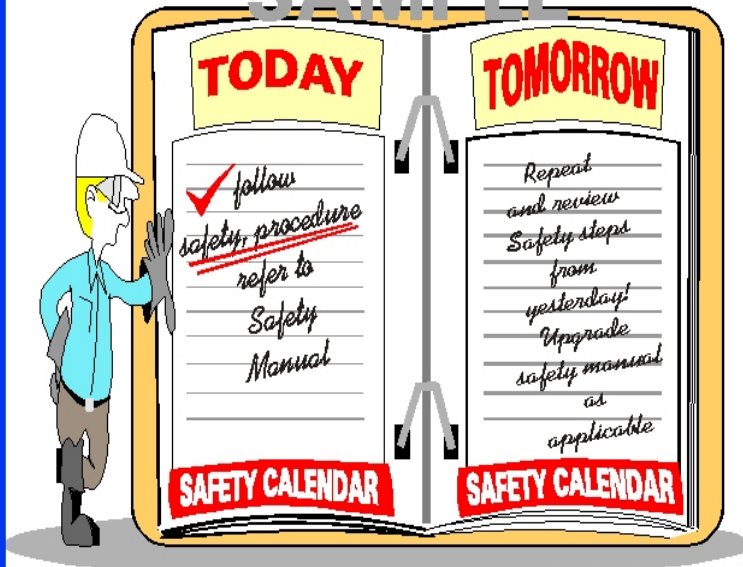 SAMPLE
TODAY
follow
safety, procedure
refer to
Safety
Manual
SAFETY CALENDAR
TOMORROW
Repeat
and review
Safety steps
from
yesterday!
Upgrade
safety manual
as
applicable
SAFETY CALENDAR